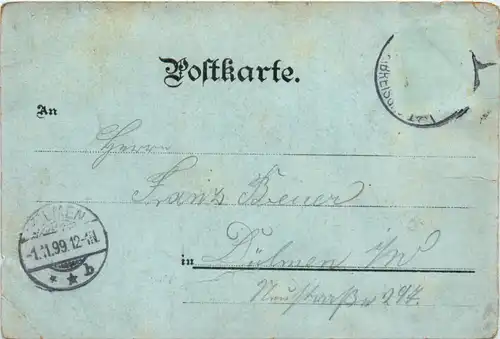 Postkarte.
An
Herrn
Franz Bener
DÜLMEN
-1.11.99.12-1N.
* * b
in Dülmen i/W
Neustraße 297.